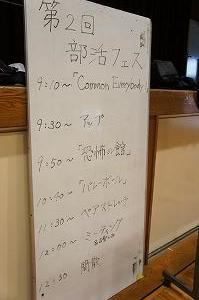 第2回
部活フェス
9:10～「Common Everybody」
9:30～ アップ
9:50～「恐怖の館」
10:40～「バレーボール」
11:30～ ペアストレッチ
12:00～ ミーティング
12:30 解散